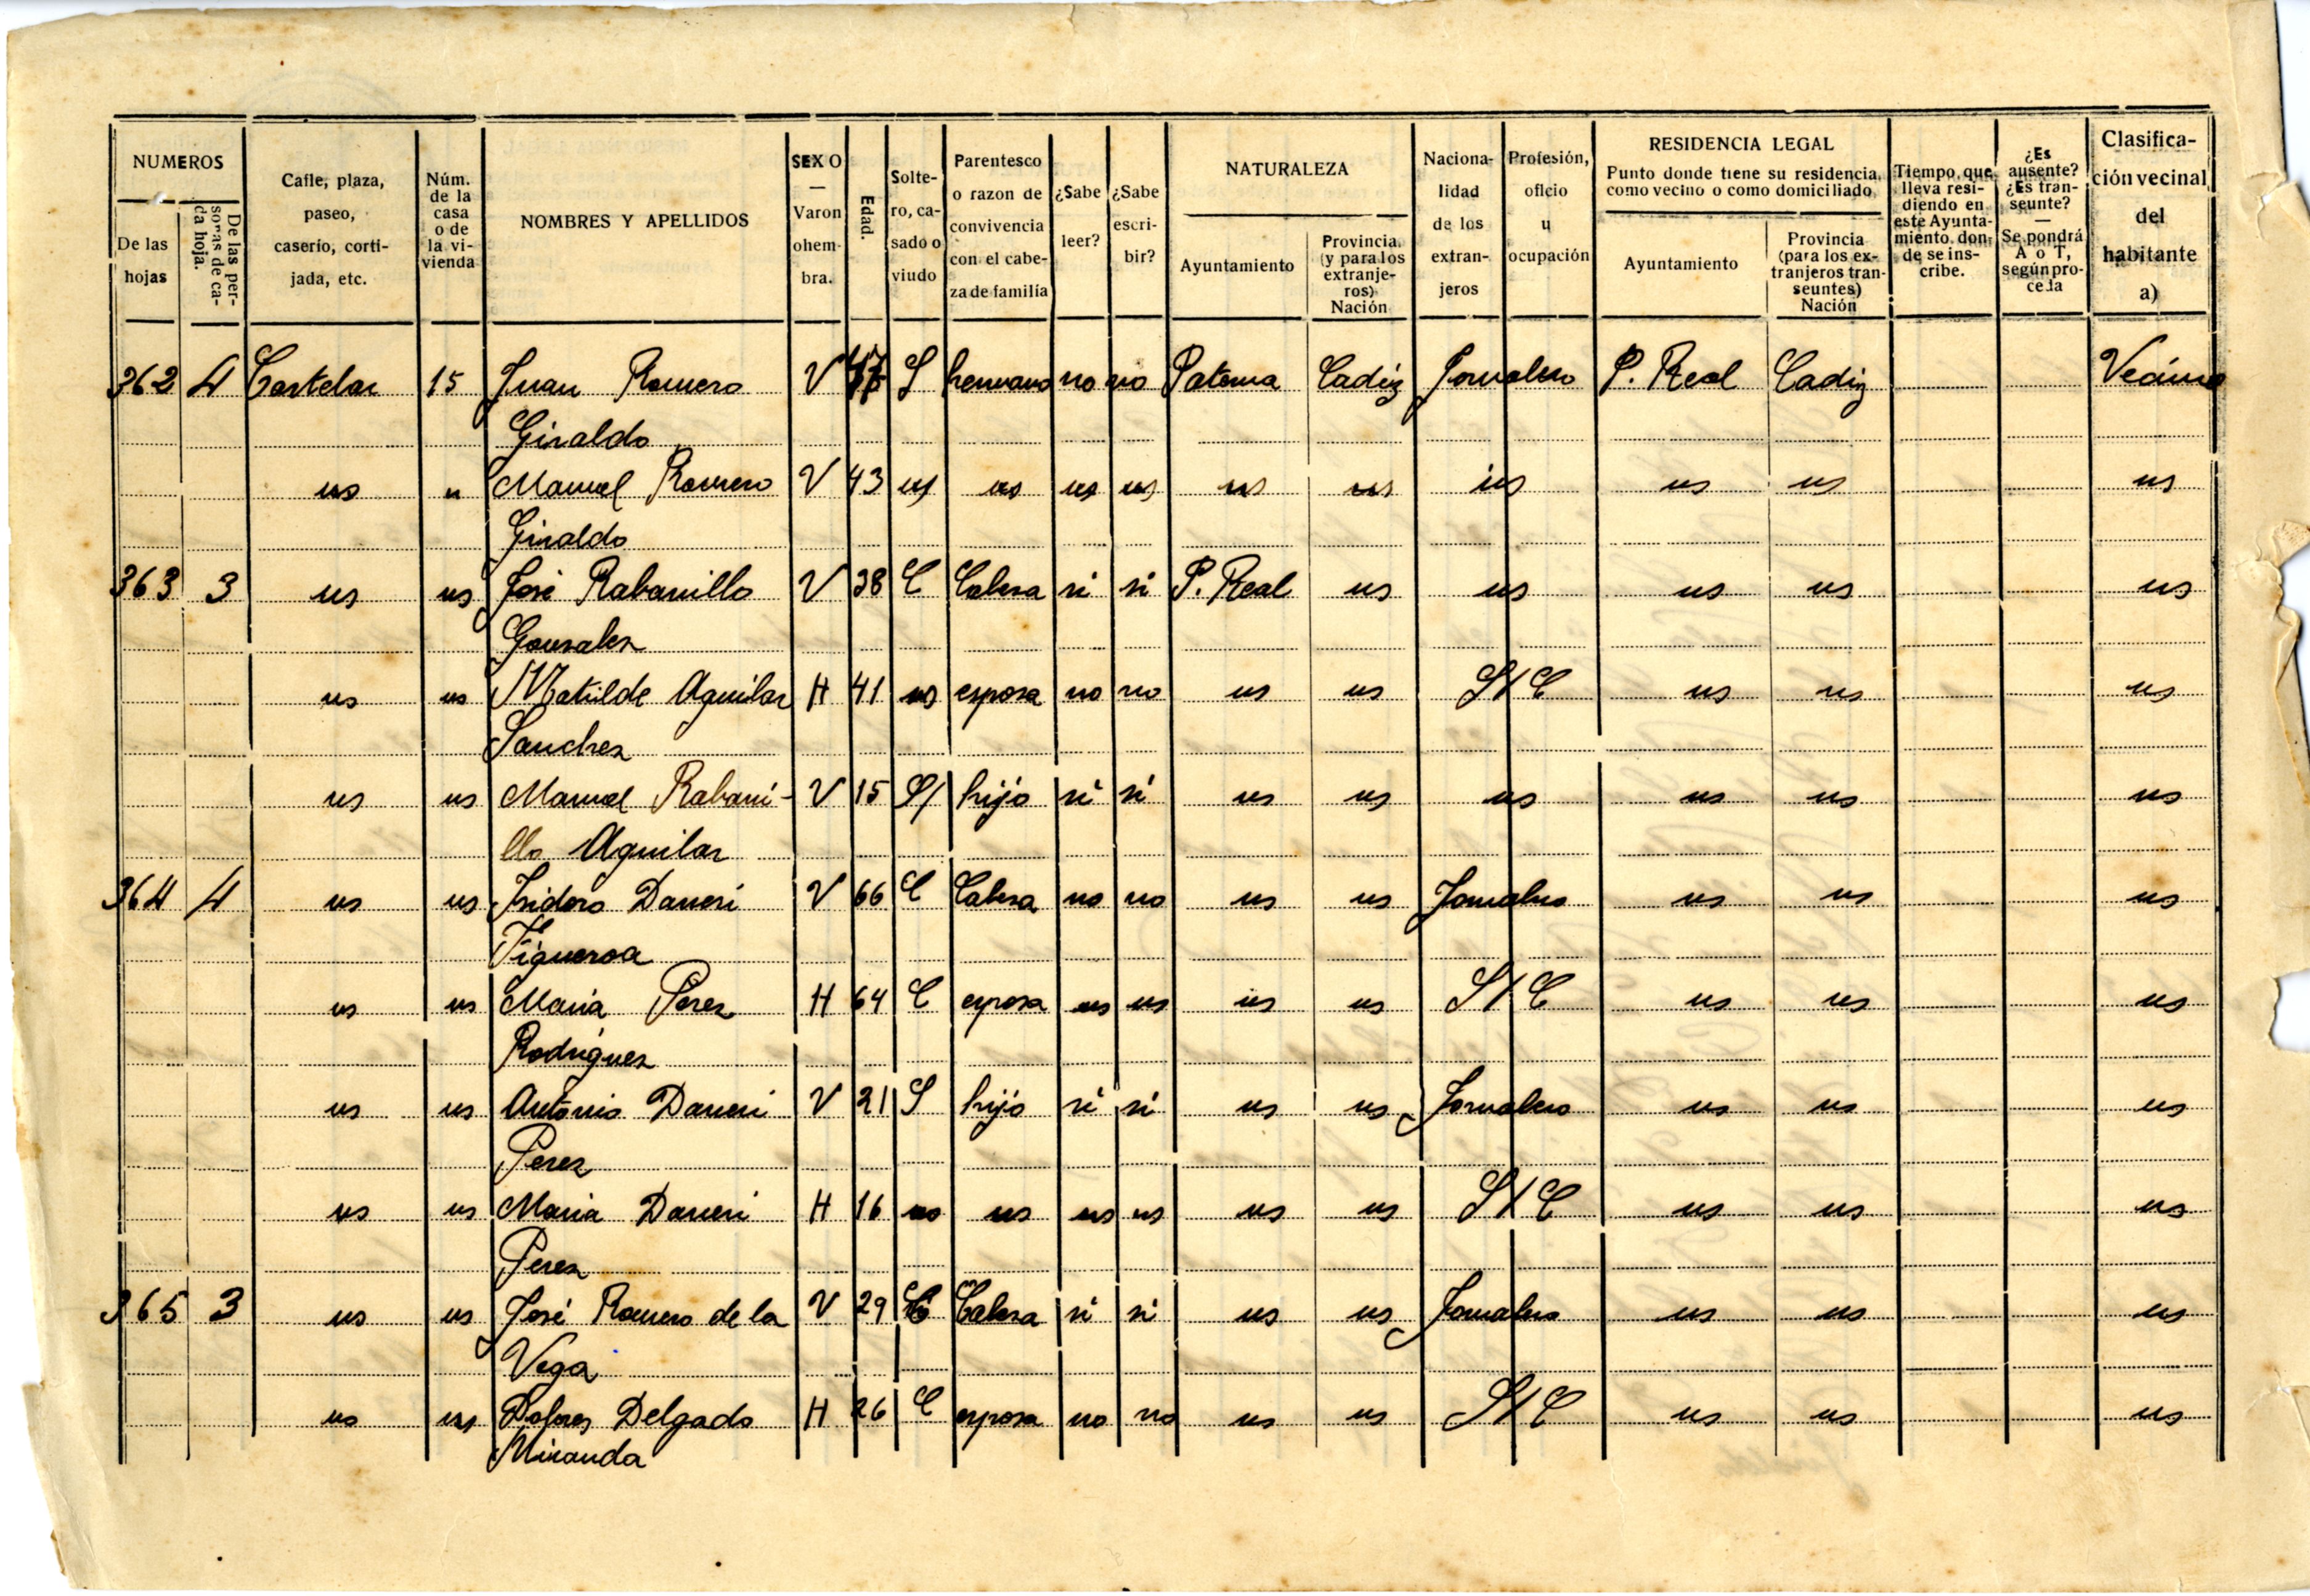 NUMEROS
De las hojas
De las personas de cada hoja.
Calle, plaza, paseo, caserío, cortijada, etc.
Núm. de la casa o de la vivienda
NOMBRES Y APELLIDOS
SEXO — Varon o hembra.
Edad.
Soltero, casado o viudo
Parentesco o razon de convivencia con el cabeza de familia
¿Sabe leer?
¿Sabe escribir?
NATURALEZA
Ayuntamiento
Provincia. (y para los extranjeros) Nación
Nacionalidad de los extranjeros
Profesión, oficio u ocupación
RESIDENCIA LEGAL
Punto donde tiene su residencia, como vecino o como domiciliado
Ayuntamiento
Provincia (para los extranjeros transeuntes) Nación
Tiempo que lleva residiendo en este Ayuntamiento donde se inscribe.
¿Es ausente? ¿Es transeunte? — Se pondrá A o T, según proceda
Clasificación vecinal del habitante a)
362 4 Castelar 15 Juan Romero V S hermano no no Paterna Cadiz Jornalero P. Real Cadiz Vecino
Giraldo
us u Manuel Romero V 43 us us us us us us us us us us
Giraldo
363 3 us us José Rabanillo V 38 C Cabeza si si P. Real us us us us us
Gonzalez
us us Matilde Aguilar H 41 us esposa no no us us S/C us us us
Sanchez
us us Manuel Rabani- V 15 S/ hijo si si us us us us us us
llo Aguilar
364 4 us us Isidoro Daneri V 66 C Cabeza no no us us Jornalero us us us
Figueroa
us us Maria Perez H 64 C esposa us us us us S/C us us us
Rodriguez
us us Antonio Daneri V 21 S hijo si si us us Jornalero us us us
Perez
us us Maria Daneri H 16 us us us us us us S/C us us us
Perez
365 3 us us José Romero de la V 29 C Cabeza si si us us Jornalero us us us
Vega
us us Dolores Delgado H 26 C esposa no no us us S/C us us us
Miranda